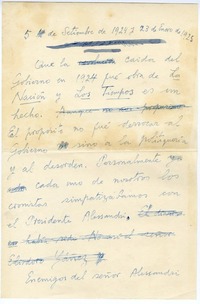 5 de Setiembre de 1924 y 23 de Enero de 1925
Que la caída del
Gobierno en 1924 fué obra de La
Nación y Los Tiempos es un
hecho.
El propósito no fué derrocar al
Gobierno sino a la politiquería
y al desorden. Personalmente
cada uno de nosotros los
cronistas simpatizábamos con
el Presidente Alessandri.
Eliodoro Yáñez
Enemigos del señor Alessandri